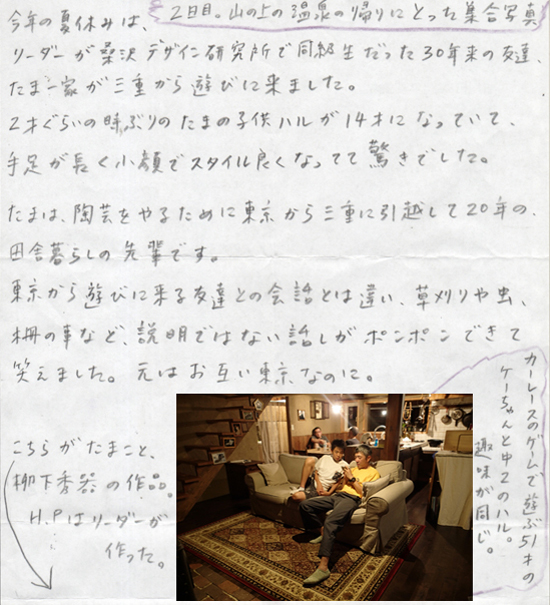 2日目。山の上の温泉の帰りにとった集合写真
今年の夏休みは、
リーダーが桑沢デザイン研究所で同級生だった30年来の友達、
たま一家が三重から遊びに来ました。
2才ぐらいの時ぶりのたまの子供ハルが14才になっていて、
手足が長く小顔でスタイル良くなってて驚きでした。
たまは、陶芸をやるために東京から三重に引越して20年の、
田舎暮らしの先輩です。
東京から遊びに来る友達との会話とは違い、草刈りや虫、
柵の事など、説明ではない話しがポンポンできて
笑えました。元はお互い東京なのに。
カーレースのゲームで遊ぶ51才の
ケーちゃんと中2のハル。
趣味が同じ。
こちらがたまこと、
柳下秀器の作品。
H.Pはリーダーが
作った。